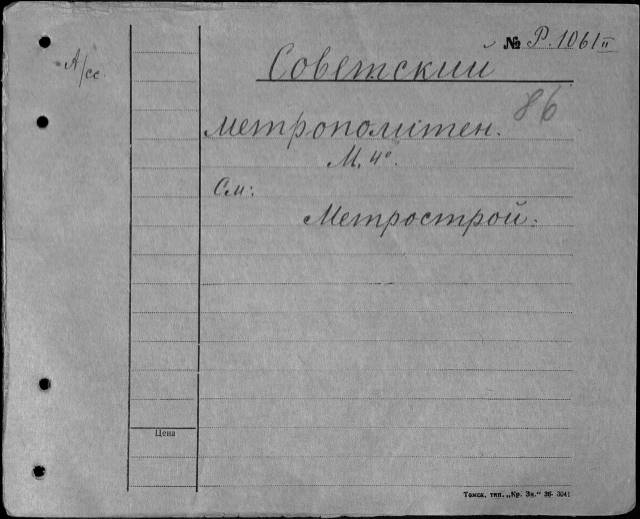 № Р. 1061 II
А/сс.
Советский
86
метрополитен.
М. 4°.
См:
Метрострой.
Цена
Томск, тип. „Кр. Зн." 36- 3041